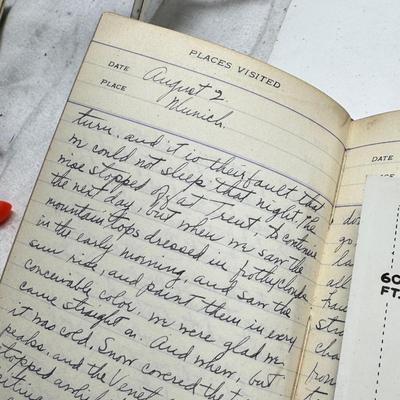 PLACES VISITED
DATE August 2
PLACE Munich.
turn, and it is their fault that
we could not sleep that night. The
wise stopped off at Trent, to continue
the next day, but when we saw the
mountain tops dressed in frothy clouds
in the early morning, and saw the
sun rise, and paint them in every
conceivable color, we were glad we
came straight on. And whew, but
it was cold. Snow covered the
peaks, and the Venet
stopped
DATE
PLACE
do
go
la
all
60
FT.